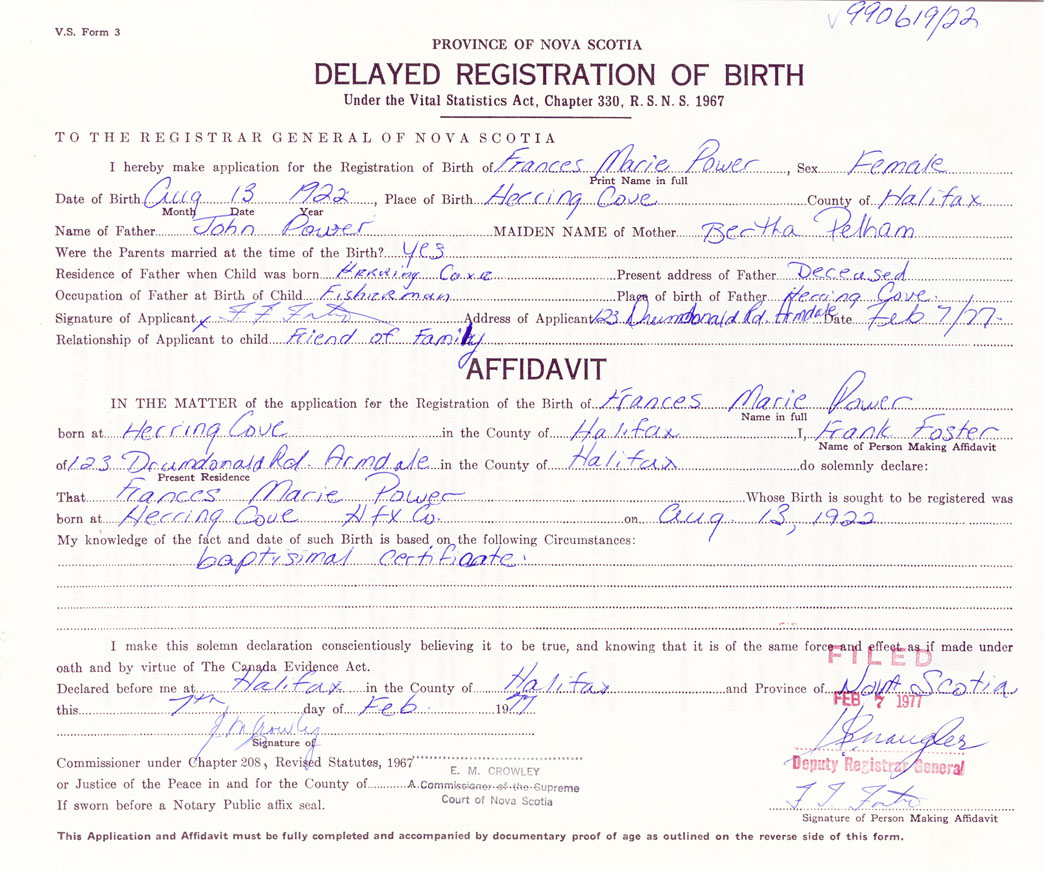 V.S. Form 3
990619/22
PROVINCE OF NOVA SCOTIA
DELAYED REGISTRATION OF BIRTH
Under the Vital Statistics Act, Chapter 330, R. S. N. S. 1967
TO THE REGISTRAR GENERAL OF NOVA SCOTIA
I hereby make application for the Registration of Birth of Frances Marie Power, Sex Female
Print Name in full
Date of Birth Aug 13 1922, Place of Birth Herring Cove County of Halifax
Month Date Year
Name of Father John Power MAIDEN NAME of Mother Bertha Pelham
Were the Parents married at the time of the Birth? yes
Residence of Father when Child was born Herring Cove Present address of Father Deceased
Occupation of Father at Birth of Child Fisherman Place of birth of Father Herring Cove.
Signature of Applicant x Address of Applicant 123 Drumdonald Rd. Armdale Date Feb 7/77.
Relationship of Applicant to child Friend of Family
AFFIDAVIT
IN THE MATTER of the application for the Registration of the Birth of Frances Marie Power
Name in full
born at Herring Cove in the County of Halifax I, Frank Foster
Name of Person Making Affidavit
of 123 Drumdonald Rd. Armdale in the County of Halifax do solemnly declare:
Present Residence
That Frances Marie Power Whose Birth is sought to be registered was
born at Herring Cove Hfx Co. on Aug. 13, 1922
My knowledge of the fact and date of such Birth is based on the following Circumstances:
baptisimal certificate.
I make this solemn declaration conscientiously believing it to be true, and knowing that it is of the same force and effect as if made under
oath and by virtue of The Canada Evidence Act.
FILED
Declared before me at Halifax in the County of Halifax and Province of Nova Scotia,
FEB 7 1977
this 7th day of Feb. 1977
E M Crowley
Signature of
Commissioner under Chapter 208, Revised Statutes, 1967
Deputy Registrar General
E. M. CROWLEY
or Justice of the Peace in and for the County of A Commissioner of the Supreme
Court of Nova Scotia
If sworn before a Notary Public affix seal.
Signature of Person Making Affidavit
This Application and Affidavit must be fully completed and accompanied by documentary proof of age as outlined on the reverse side of this form.